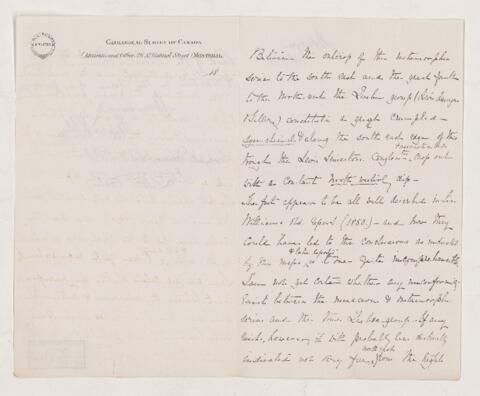 GEOLOGICAL SURVEY OF CANADA
(Museum and Office, 76 St Gabriel Street) MONTREAL.
18
Between the outcrop of this metamorphic
series to the south east and the great fault
to the North west the Quebec group (
& Sillery) constitute a great crumpled
synclinal & along the south east edge of this
trough the Levis limestone Conglom. crop out
with a constant North westerly dip—
The facts appear to be all well described in Sir
William's old report (1850)— and how they
could have led to the conclusions as indicated
& later reports
by the maps is to me quite incomprehensible
I am not yet certain whether any unconformity
exist between the & metamorphic
series and the true Quebec group. If any
exists, however, it will probably be distinctly
north east
indicated not very far from the right